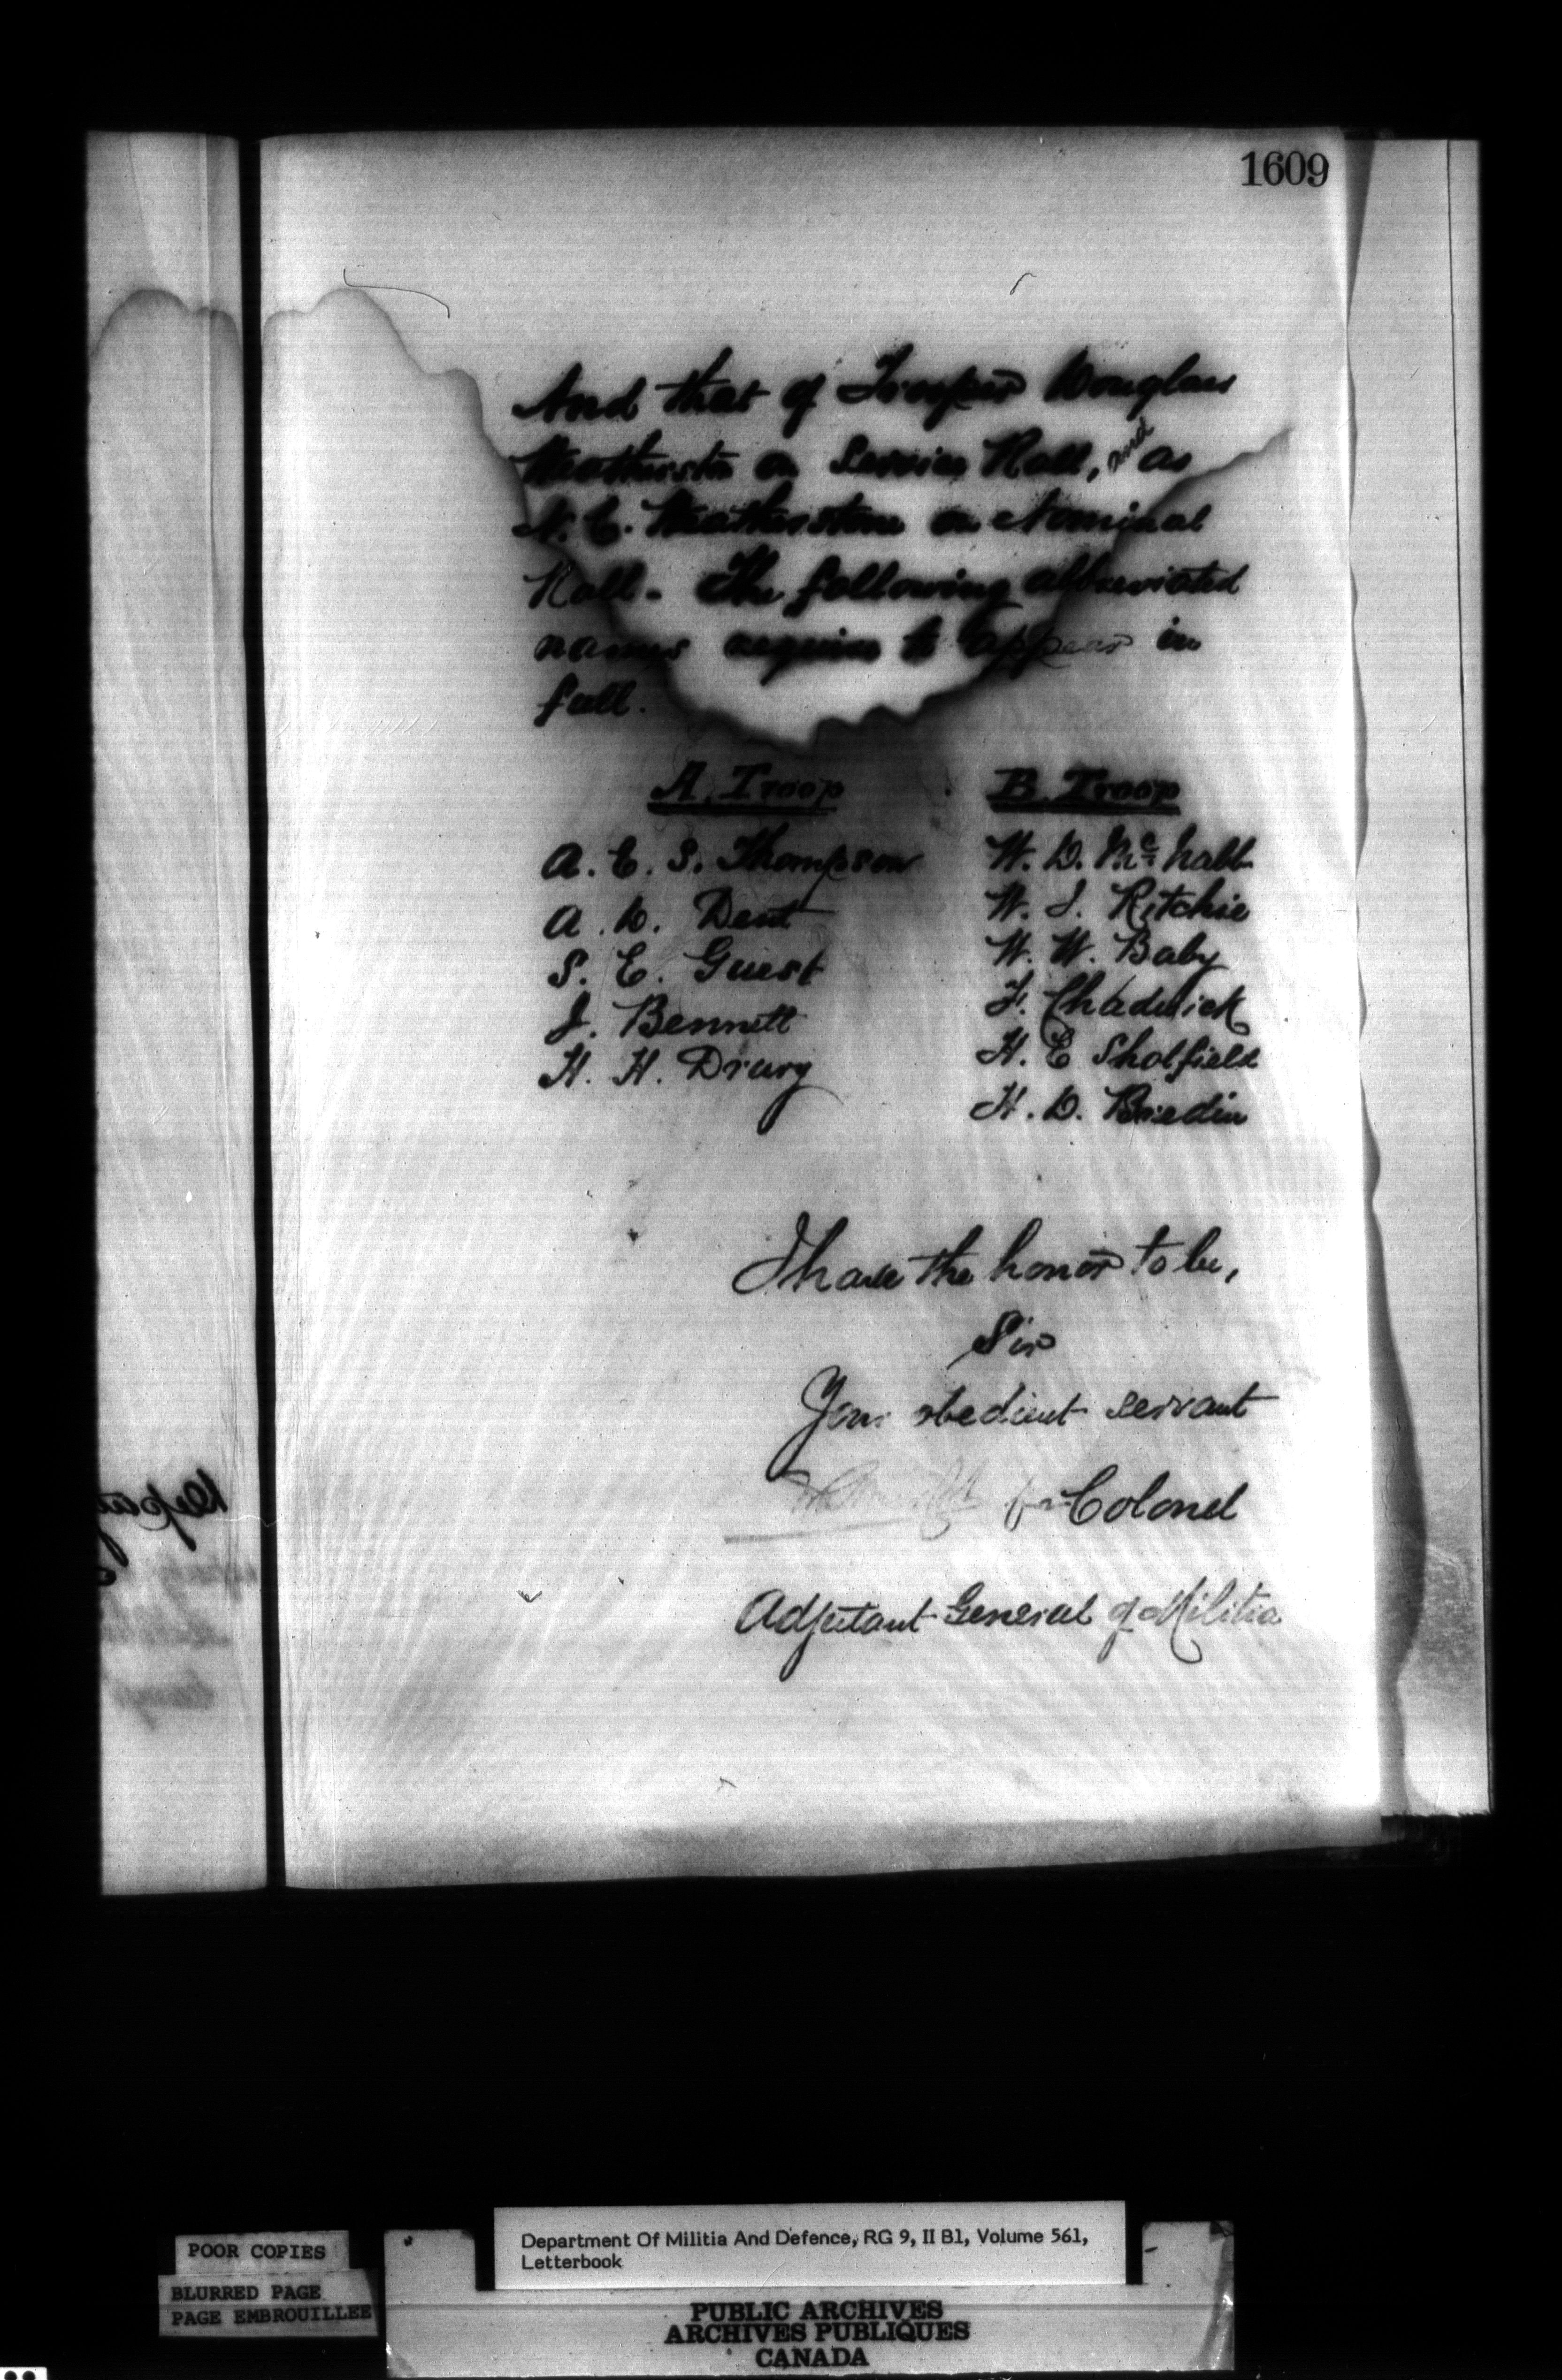 1609
And that of Trooper Douglas
Weatherston on Service Roll, and as
N. C. Weatherstone on Nominal
Roll. The following abbreviated
names require to appear in
full.
A. Troop
A. C. S. Thompson
A. D. Dent
S. E. Guest
J. Bennett
H. H. Drury
B. Troop
W. D. McNabb
W. J. Ritchie
W. W. Baby
F. Chadwick
H. E Sholfield
H. D. Bredin
I have the honor to be,
Sir
Your obedient servant
for Colonel
Adjutant General of Militia
POOR COPIES
BLURRED PAGE
PAGE EMBROUILLEE
Department Of Militia And Defence, RG 9, II B1, Volume 561,
Letterbook
PUBLIC ARCHIVES
ARCHIVES PUBLIQUES
CANADA